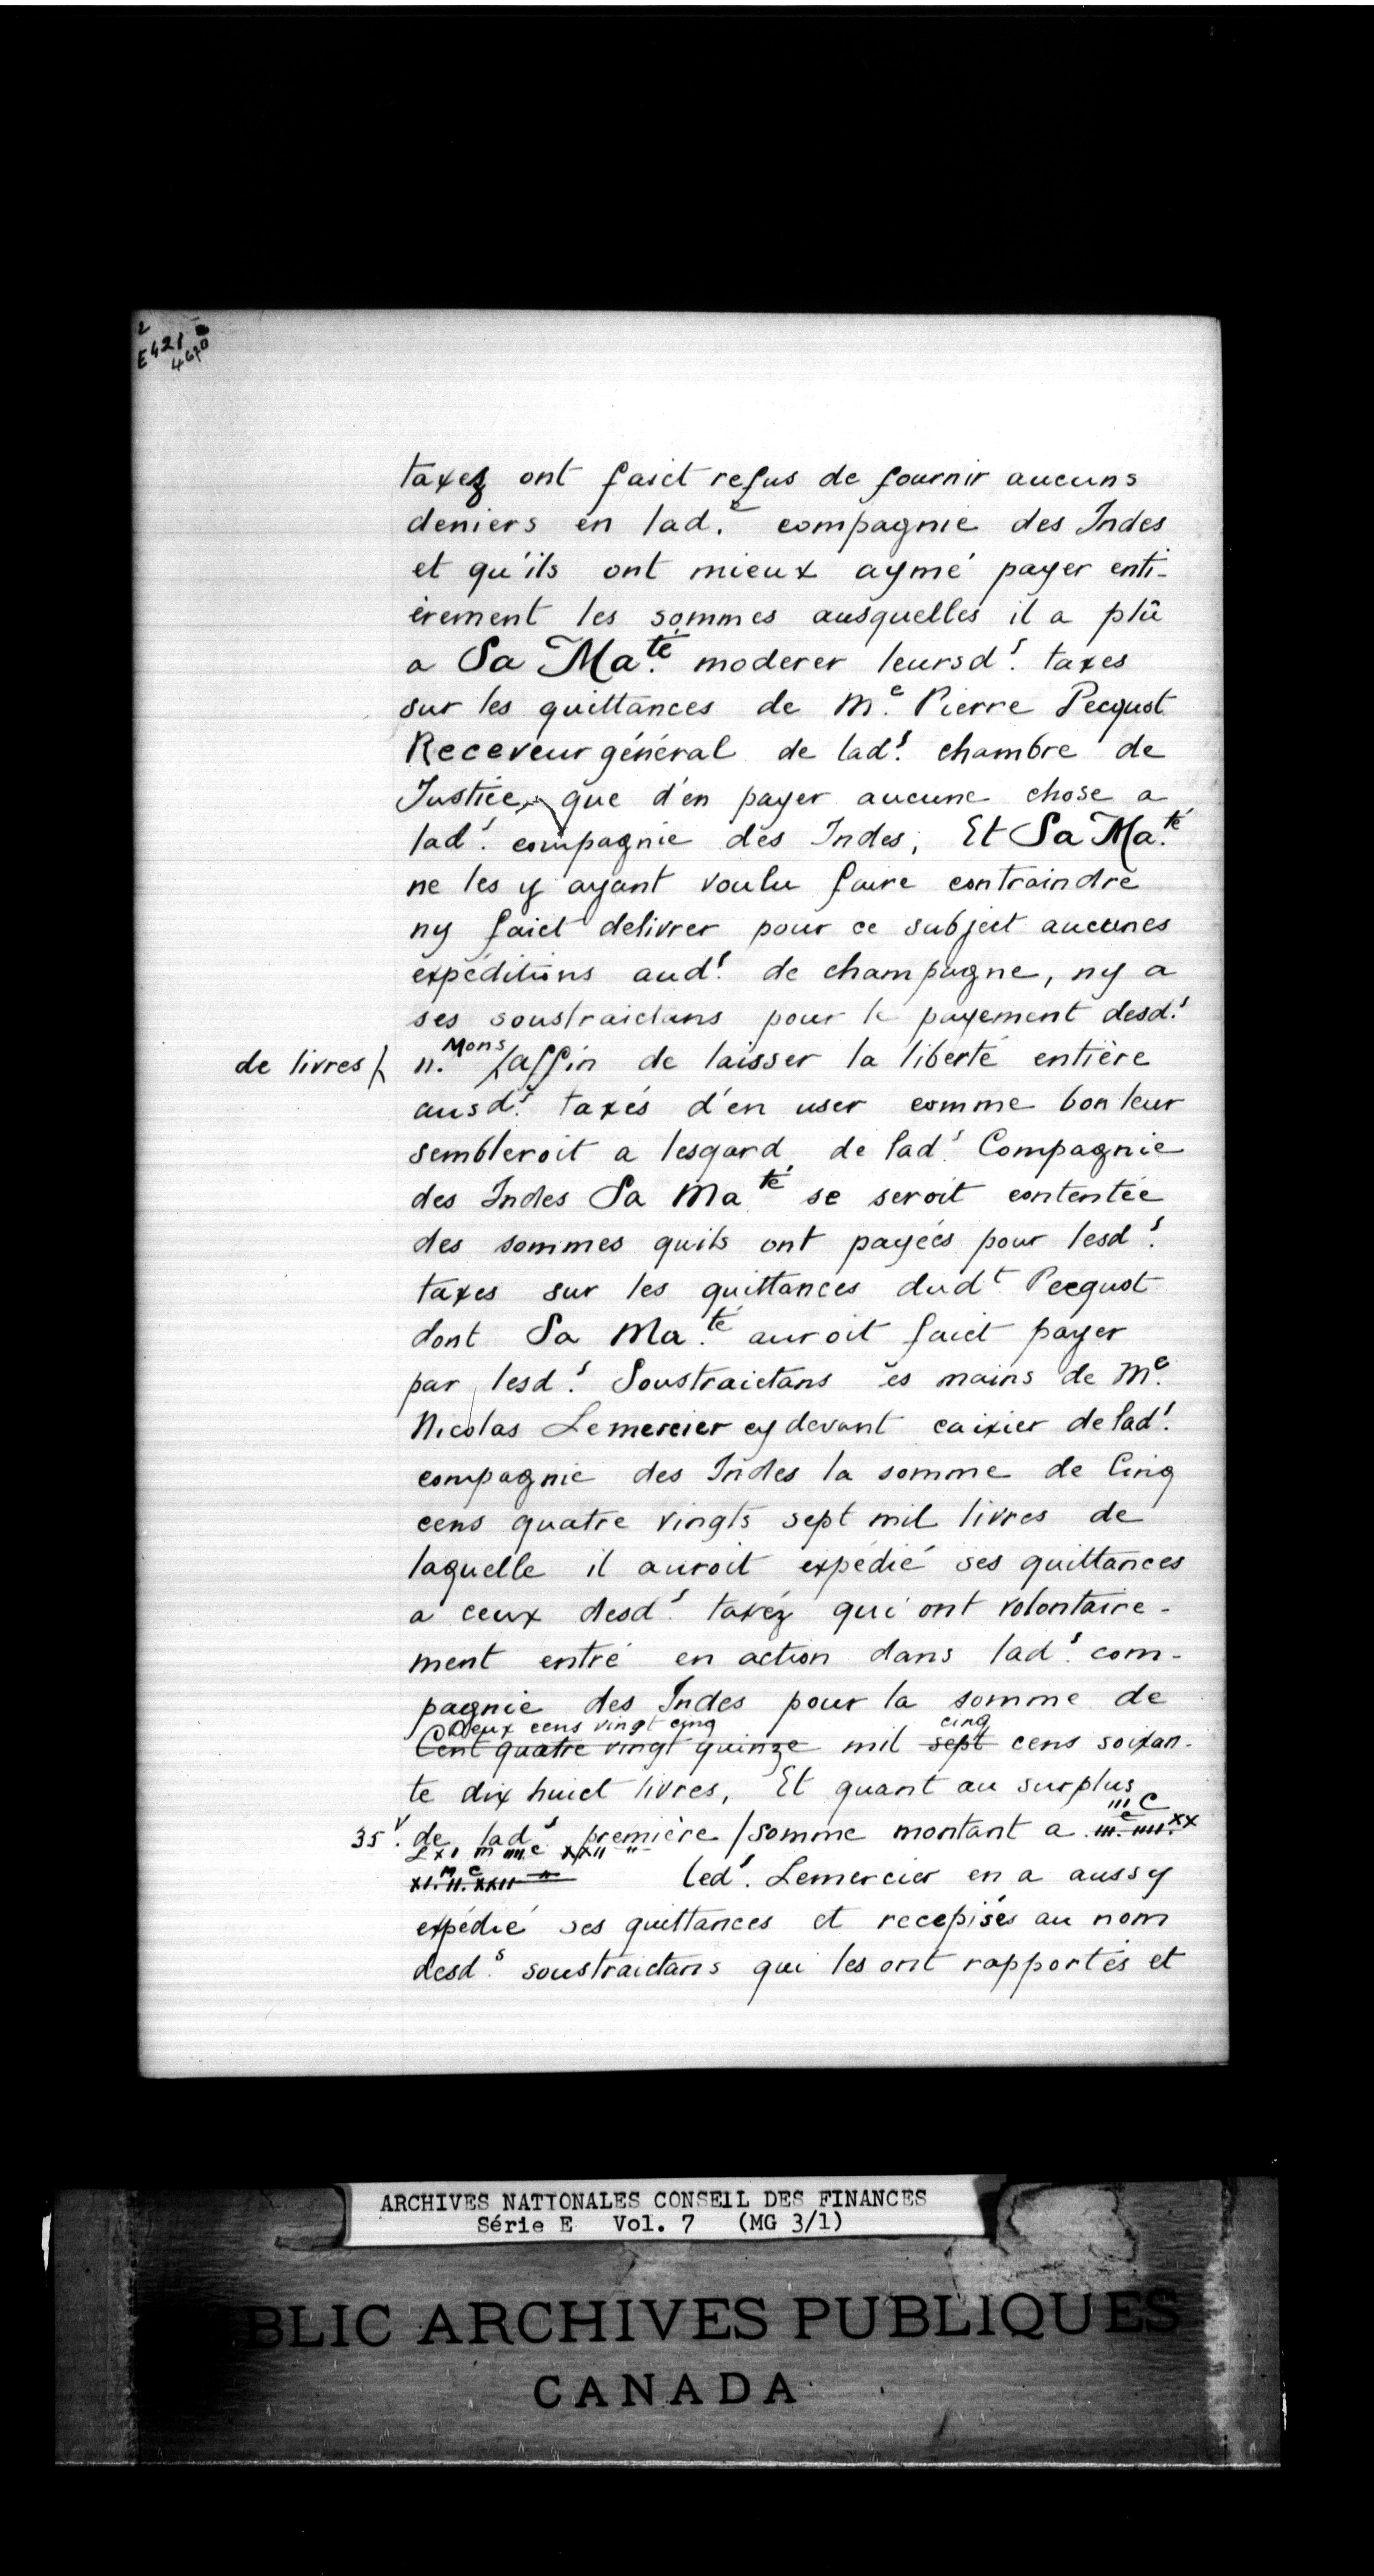 2
E 421
taxez ont faict refus de fournir aucuns
deniers en lad.e compagnie des Indes
et qu'ils ont mieux aymé payer enti-
èrement les sommes ausquelles il a plû
a Sa Ma.té moderer leursd.s taxes
sur les quittances de M.e Pierre Pecquot
Receveur général de lad.s chambre de
Justice, que d'en payer aucune chose a
lad.s compagnie des Indes, Et Sa Ma.té
ne les y ayant voulu faire contraindre
ny faict delivrer pour ce subject aucunes
expéditions aud.s de champagne, ny a
ses soustraictans pour le payement desd.s
de livres/ II. Mons /affin de laisser la liberté entière
ausd.s taxés d'en user comme bon leur
sembleroit a lesgard de lad.s Compagnie
des Indes Sa Ma té se seroit contentée
des sommes quils ont payées pour lesd.s
taxes sur les quittances dud.t Pecquot
dont Sa Ma.té auroit faict payer
par lesd.s Soustraictans ès mains de M.e
Nicolas Lemercier cy devant caixier de lad.s
compagnie des Indes la somme de Cinq
cens quatre vingts sept mil livres de
laquelle il auroit expédié ses quittances
a ceux desd.s taxéz qui ont volontaire-
ment entré en action dans lad.s com-
pagnie des Indes pour la somme de
Deux cens vingt cinq cinq
Cent quatre vingt quinze mil sept cens soixan-
te dix huict livres, Et quant au surplus
III C
35 v. de lad.s première /somme montant a III.c IIII.XX
LXI m IIII c XXII "
XI.M II.C XXII " led.s Lemercier en a aussy
expédié ses quittances et recepisés au nom
desd.s soustraictans qui les ont rapportés et
ARCHIVES NATIONALES CONSEIL DES FINANCES
Série E Vol. 7 (MG 3/1)
BLIC ARCHIVES PUBLIQUES
CANADA